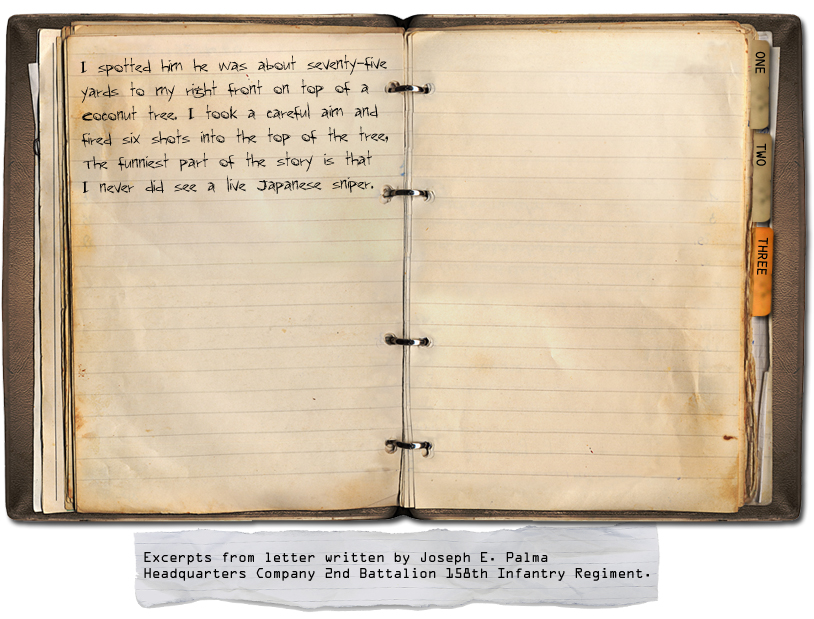 I spotted him he was about seventy-five
yards to my right front on top of a
coconut tree. I took a careful aim and
fired six shots into the top of the tree,
The funniest part of the story is that
I never did see a live Japanese sniper.
ONE
TWO
THREE
Excerpts from letter written by Joseph E. Palma
Headquarters Company 2nd Battalion 158th Infantry Regiment.